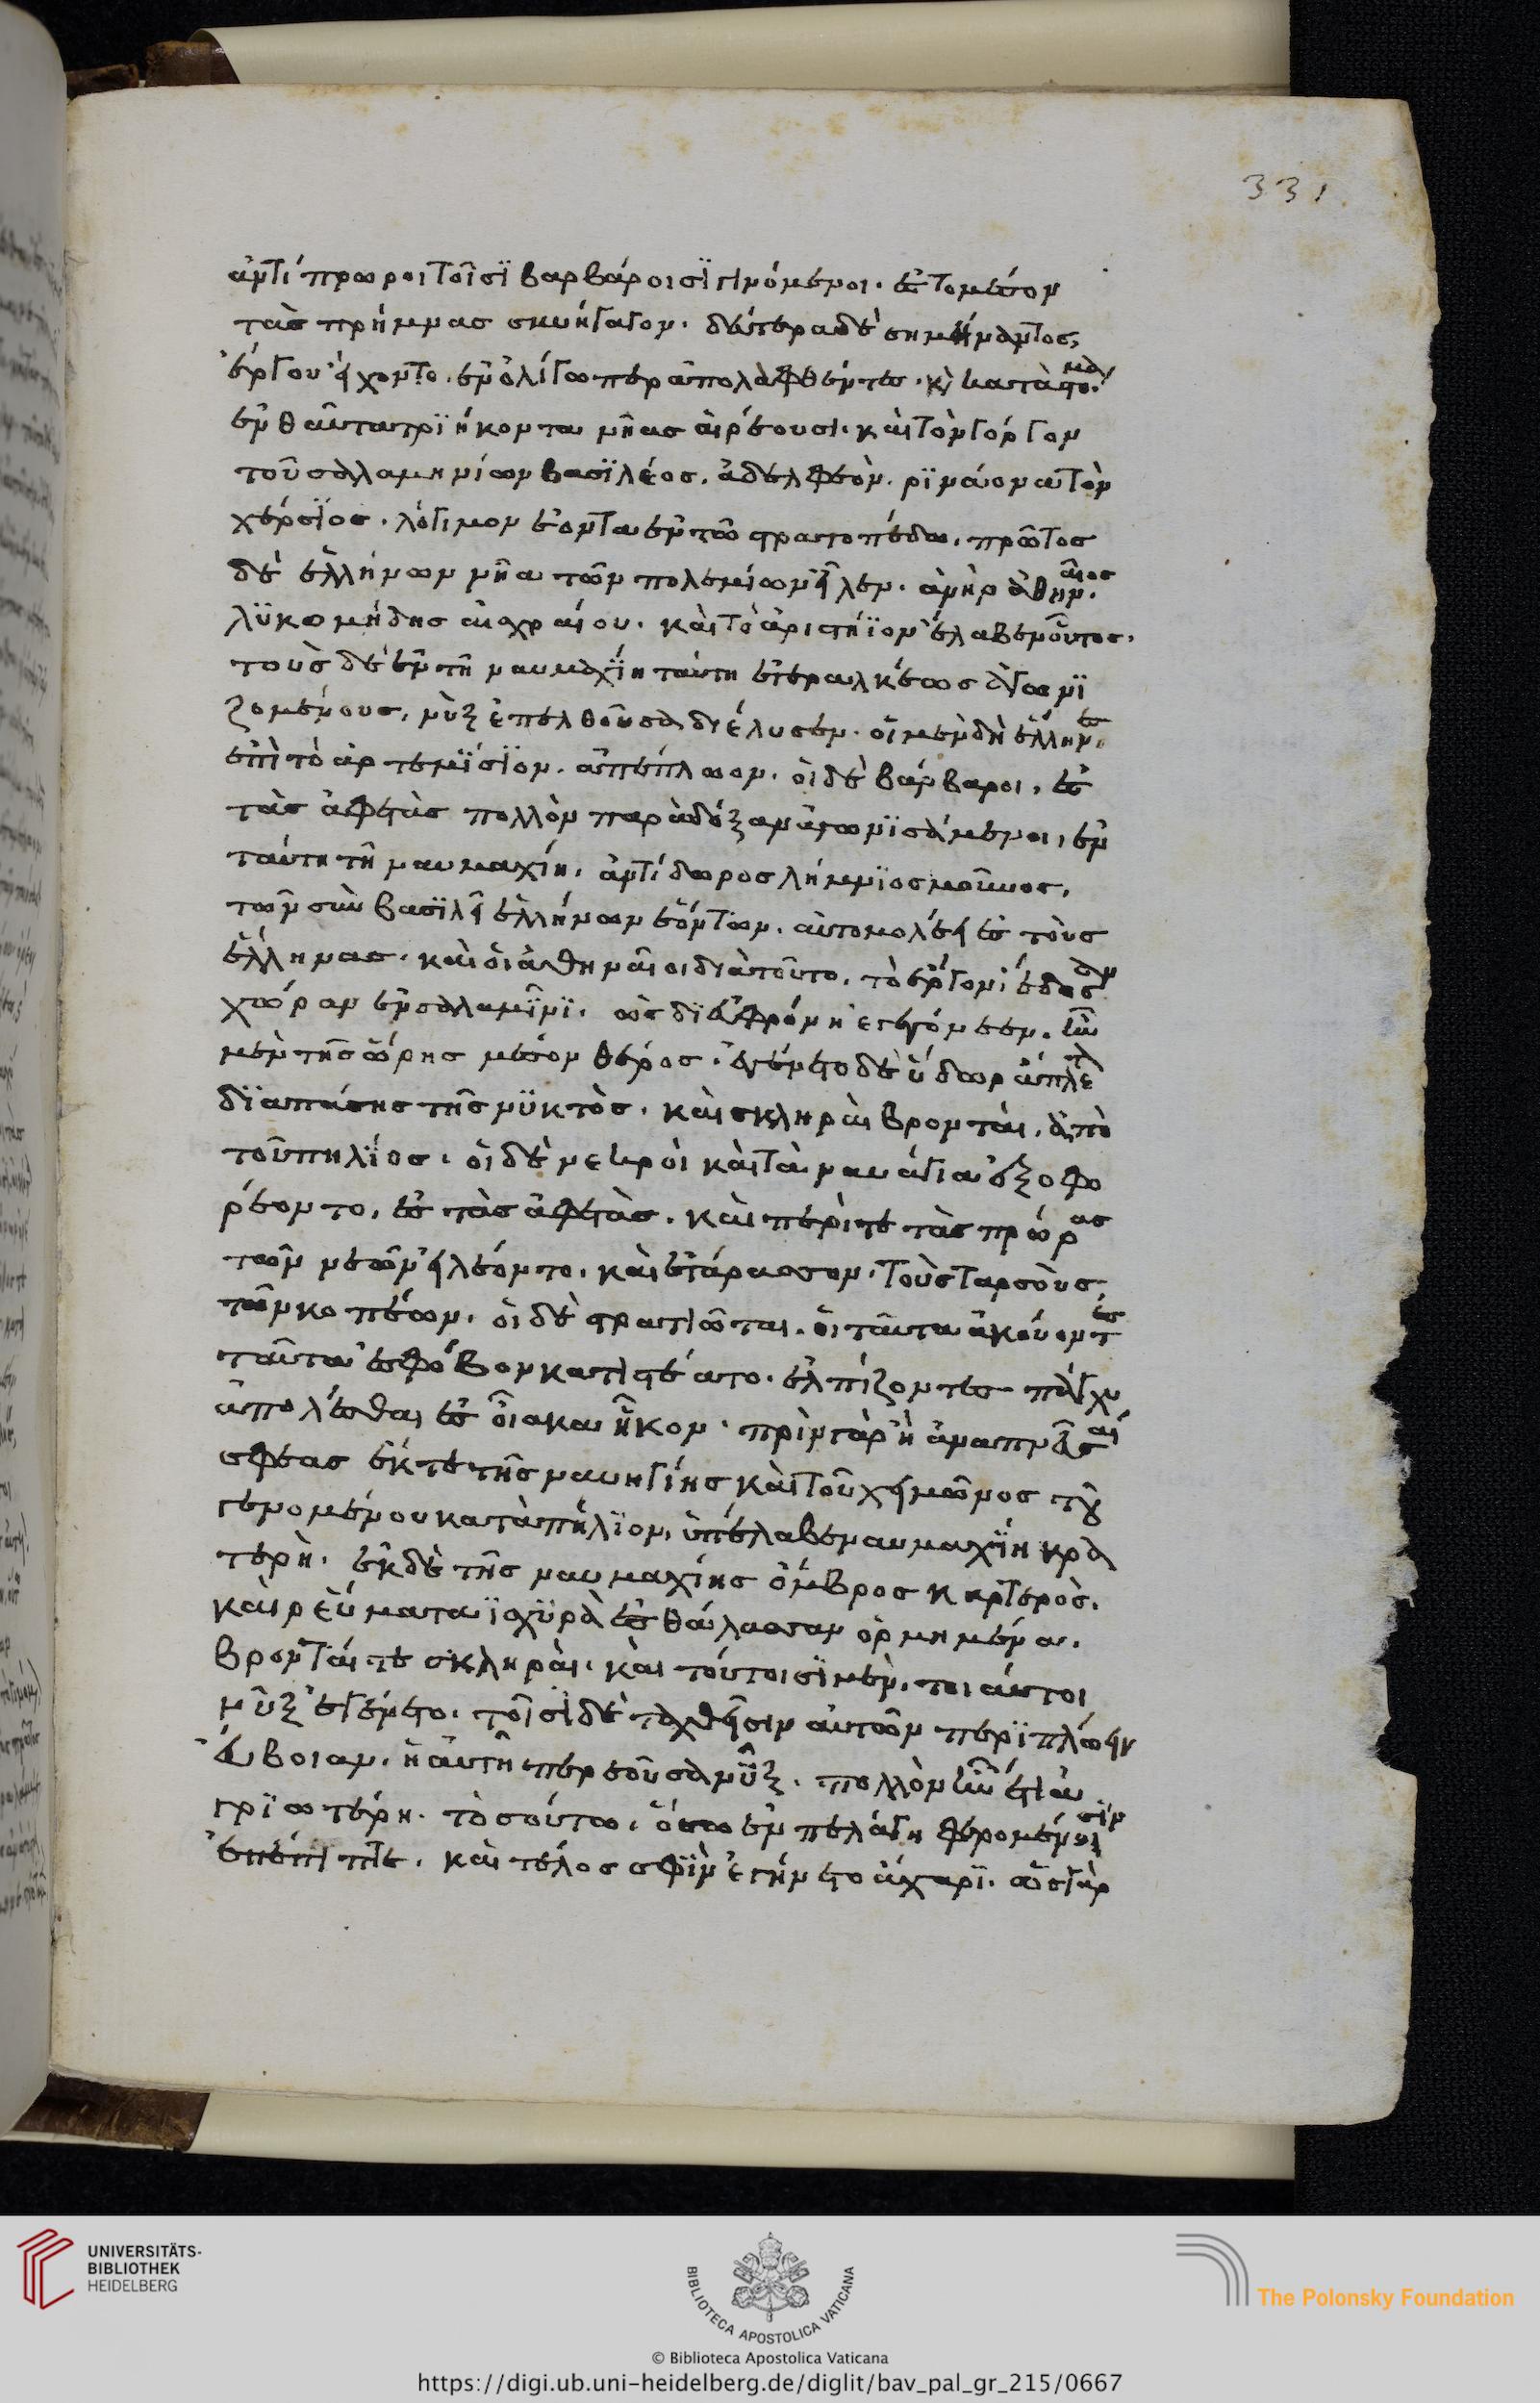 331
ἀντίπρωροι τοῖσϊ βαρβάροισϊ γινόμενοι. ἐς τὸ μέσον
τὰς πρήμνας συνήγαγον. δεύτερα δὲ σημήναντος,
ἔργου εἴχοντο. ἐν ὀλίγω περ ἀπολαφθέντες. κỳ κατὰ στόμα.
ἐνθαῦτα τριήκοντα νῆας αἱρέουσι. καὶ τὸν Γόργου
τοῦ σαλαμηνίων βασϊλέος. ἀδελφεὸν. φϊλάονα τὸν
χέρσϊος. λόγιμον ἐόντα ἐν τῶ στρατοπέδω. πρῶτος
δὲ ἑλλήνων νῆα τῶν πολεμίων εἷλεν. ἀνὴρ ἀθηναῖος
λϋκομήδης αἰσχραίου. καὶ τὸ ἀριστήϊον ἔλαβεν οὗτος.
τοὺς δ' ἐν τῆ ναυμαχίη ταύτη ἑτεραλκέως ἀγωνϊ
ζομένους, νὺξ ἐπελθοῦσα διέλυσεν. οἱ μὲν δὴ ἕλληνες
ἐπὶ τὸ ἀρτεμΐσϊον. ἀπέπλωον. οἱ δὲ βάρβαροι, ἐς
τὰς ἀφετὰς πολλὸν παρὰ δόξαν ἀγωνϊσάμενοι, ἐν
ταύτη τῆ ναυμαχίη. ἀντίδωρος λήμνϊος μοῦνος,
τῶν σὺν βασϊλεῖ ἑλλήνων ἐόντων. αὐτομολέει ἐς τοὺς
ἕλληνας. καὶ οἱ ἀθηναῖοι διὰ τοῦτο. τὸ ἔργον, ἔδοσαν
χῶραν ἐν σαλαμῖνϊ. ὡς δϊ εὐφρόνη ἐγεγόνεεν. ἦν
μὲν τῆς ὥρης μέσον θέρος. ἐγένετο δὲ ὕδωρ ἄπλετον
δϊα πάσης τῆς νϋκτὸς. καὶ σκληραὶ βρονταὶ, ἀπὸ
τοῦ πηλΐου. οἱ δὲ νεκροὶ καὶ τὰ ναυάγια ἐξοφο
ρέοντο, ἐς τὰς ἀφετὰς. καὶ περί τε τὰς πρώρας
τῶν νεῶν εἱλέοντο. καὶ ἐτάρασσον. τοὺς ταρσοὺς,
τῶν κοπέων. οἱ δὲ στρατιῶται. οἱ ταύτα ἀκούοντες
ταῦτα ἐς φόβον κατιστέατο. ἐλπίζοντες πάγχυ
ἀπολέεσθαι ἐς οἷα κακὰ ἧκον. πρὶν γὰρ ἢ ἀναπνεῦσαί
σφεας ἔκ τε τῆς ναυηγίης καὶ τοῦ χειμῶνος τοῦ
γενομένου κατὰ πήλϊον, ὑπέλαβε ναυμαχΐη καρ
τερὴ. ἐκ δὲ τῆς ναυμαχίης ὄμβρος καρτερὸς.
καὶ ρεύματα ϊσχϋρὰ ἐς θάλασσαν ὁρμημένα.
βρονταί τε σκληραὶ. καὶ τούτοισϊ μὲν, τοιαύτη
νὺξ ἐγένετο. τοῖσϊ δὲ ταχθεῖσιν αὐτῶν περϊπλώειν
εὔβοιαν. ἡ αὐτή περ ἐοῦσα νὺξ. πολλὸν ἦν ἔτι ἀ
γρϊωτέρη. τοσούτω. ὅσω ἐν πελάγεϊ φερομένοισϊν
ἐπέπιπτε. καὶ τέλος σφϊν ἐγένετο ἄχαρϊ. ὡς γὰρ
UNIVERSITÄTS-
BIBLIOTHEK
HEIDELBERG
BIBLIOTECA APOSTOLICA VATICANA
The Polonsky Foundation
© Biblioteca Apostolica Vaticana
https://digi.ub.uni-heidelberg.de/diglit/bav_pal_gr_215/0667